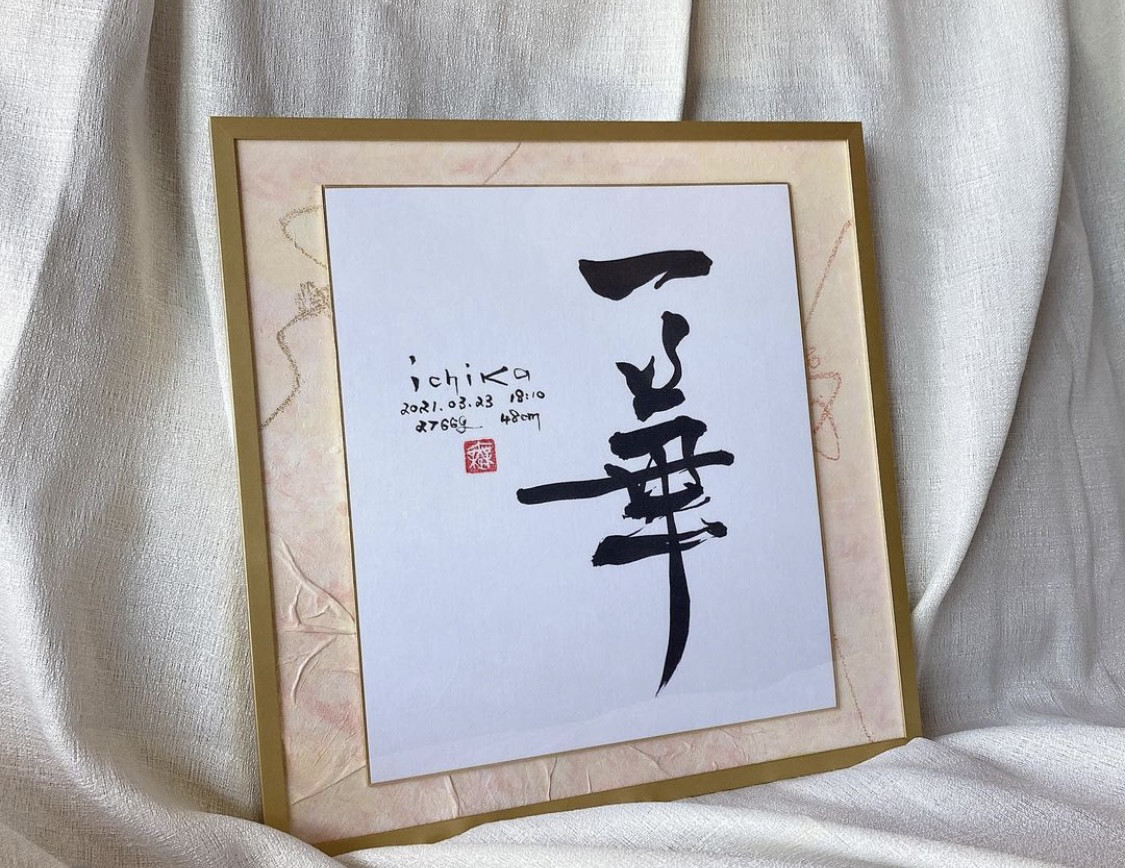 一華
ichika
2021.03.23 18:10
2766g 48cm